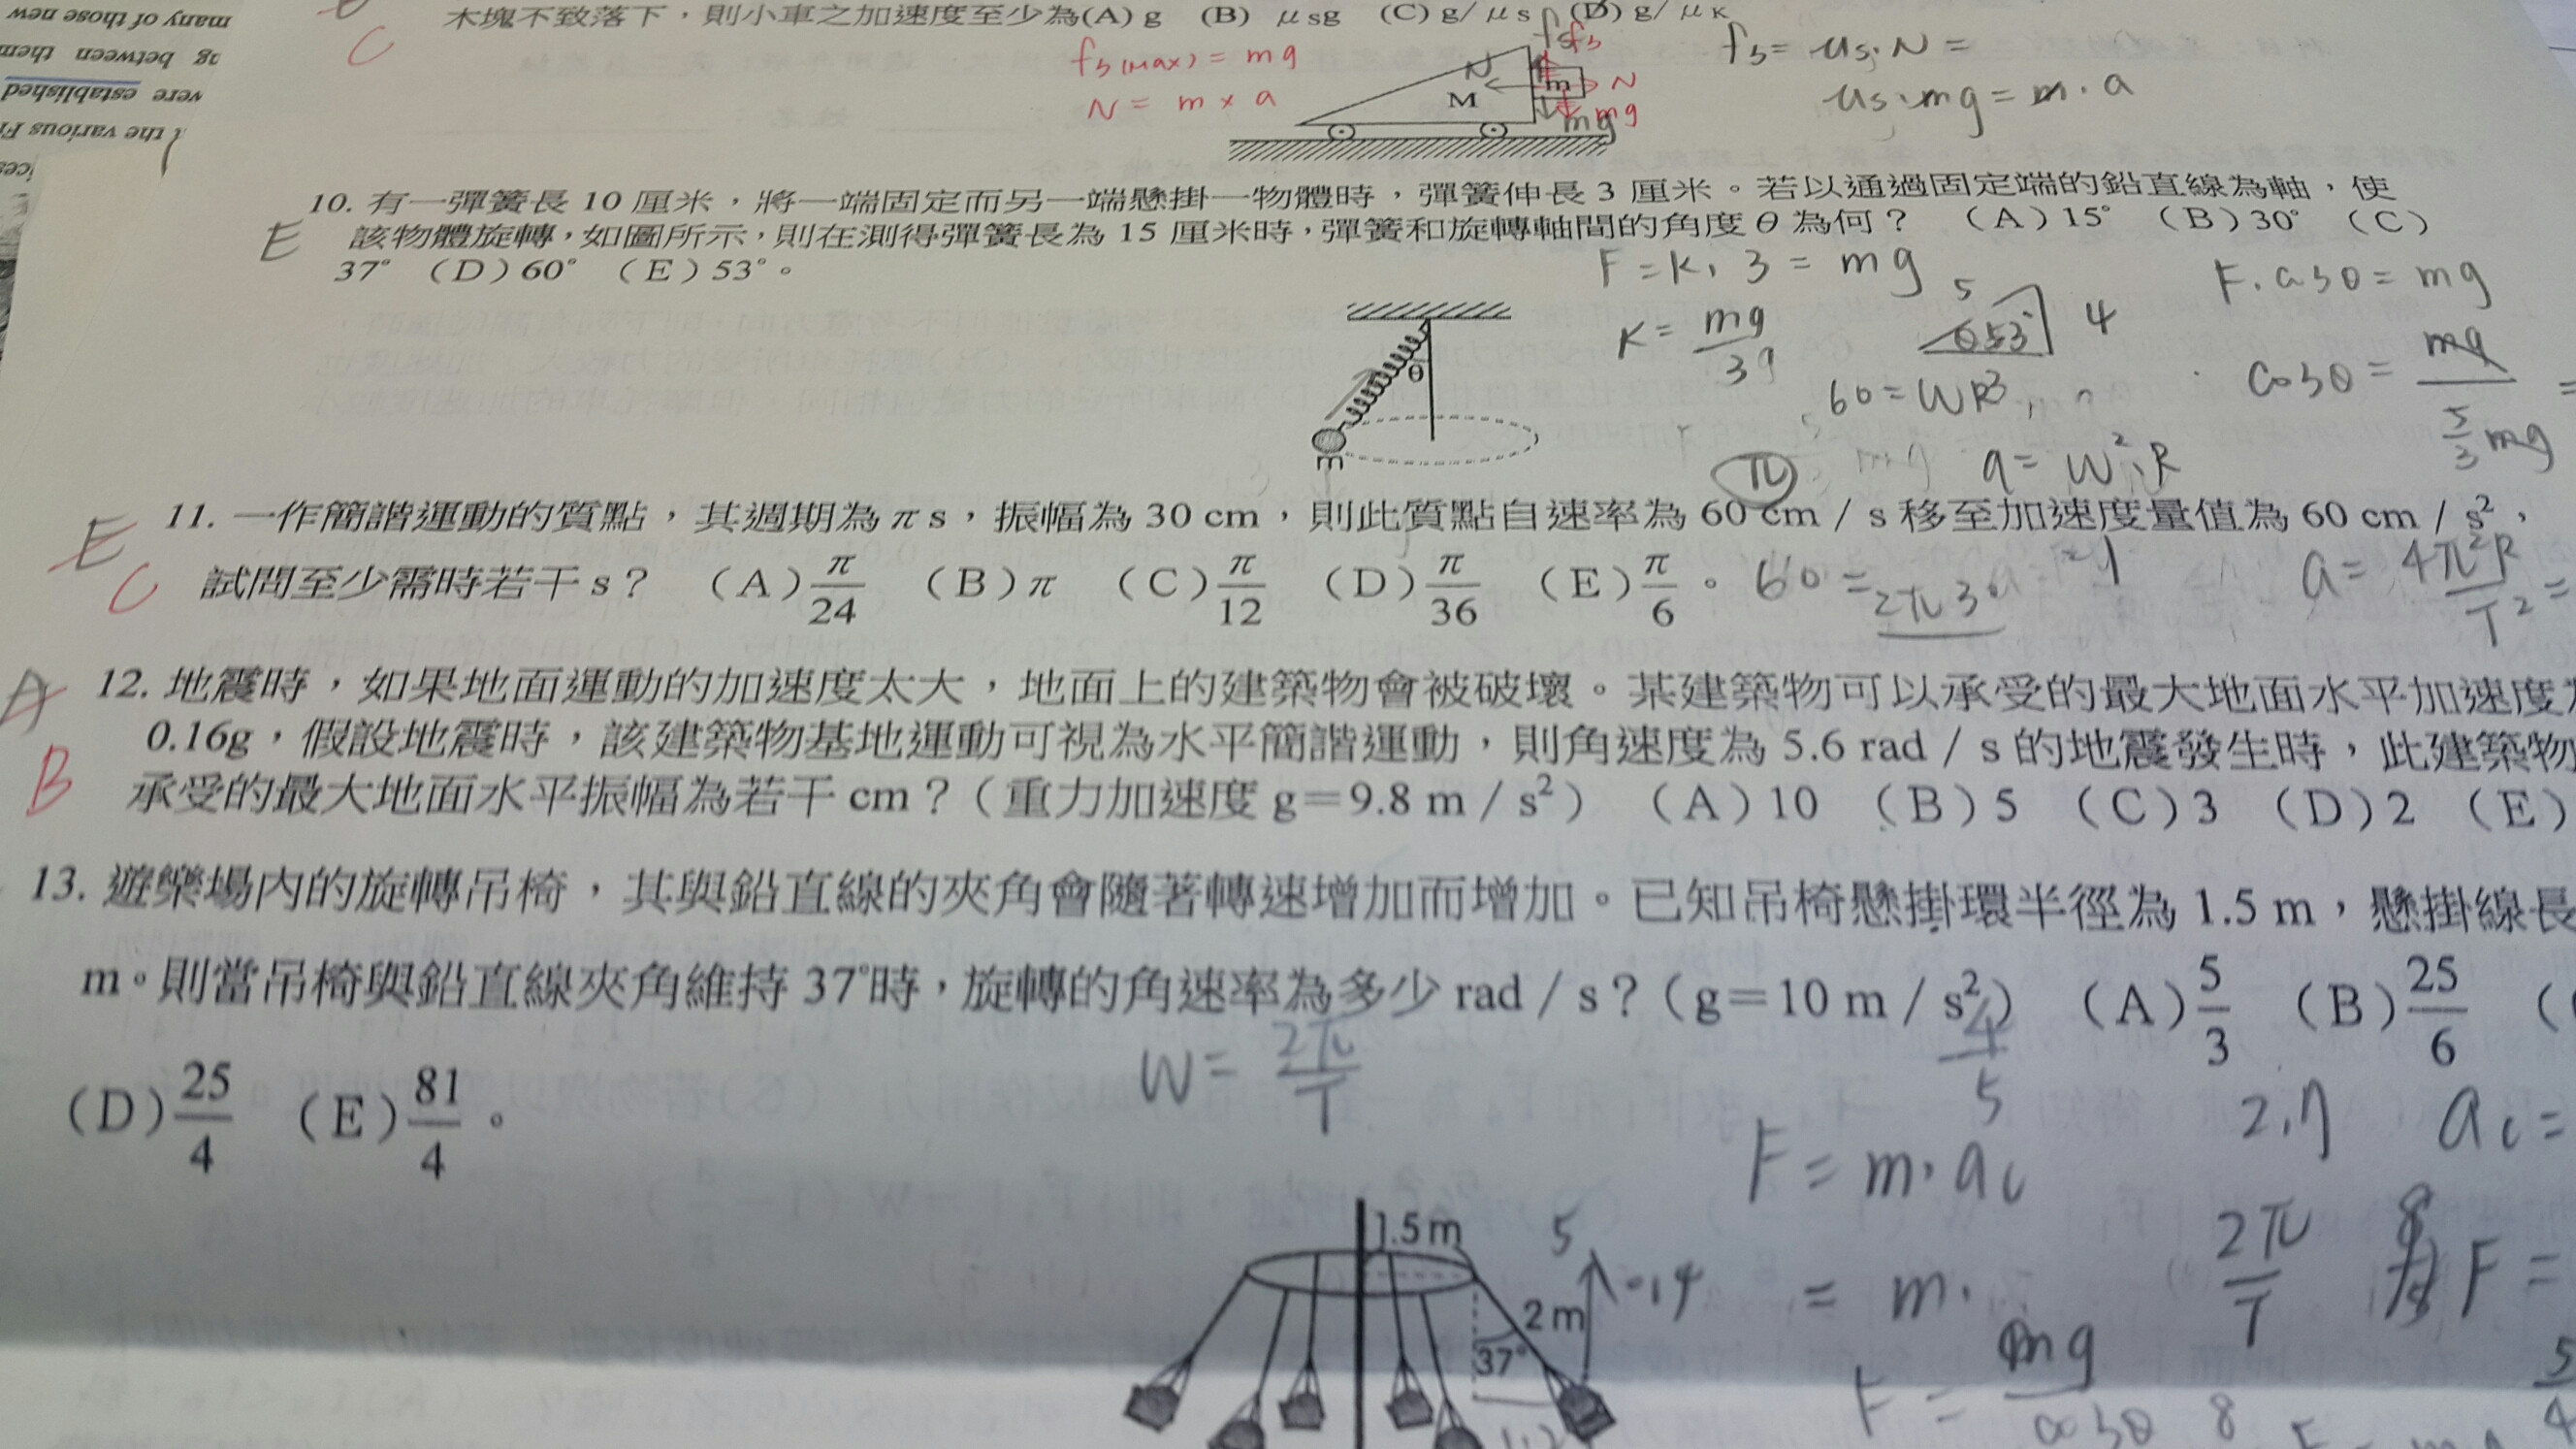 many of those new
ng between them
were established
l the various Fi
ices
木塊不致落下，則小車之加速度至少為(A) g (B) μsg (C) g/μs (D) g/μK
C
fs(max) = mg
N = m × a
N
M
m
N
mg
mg
fs = us·N =
us·mg = m·a
10. 有一彈簧長 10 厘米，將一端固定而另一端懸掛一物體時，彈簧伸長 3 厘米。若以通過固定端的鉛直線為軸，使
E
該物體旋轉，如圖所示，則在測得彈簧長為 15 厘米時，彈簧和旋轉軸間的角度 θ 為何？ （A）15° （B）30° （C）
37° （D）60° （E）53°。
F = K · 3 = mg
F · cosθ = mg
5
4
53°
θ
m
cosθ = mg / 5/3 mg =
a = W² · R
π
11. 一作簡諧運動的質點，其週期為 π s，振幅為 30 cm，則此質點自速率為 60 cm / s 移至加速度量值為 60 cm / s²，
E
C
試問至少需時若干 s？ （A）π/24 （B）π （C）π/12 （D）π/36 （E）π/6。
a = 4π²R / T² =
12. 地震時，如果地面運動的加速度太大，地面上的建築物會被破壞。某建築物可以承受的最大地面水平加速度
A
0.16g，假設地震時，該建築物基地運動可視為水平簡諧運動，則角速度為 5.6 rad / s 的地震發生時，此建築物
B
承受的最大地面水平振幅為若干 cm？（重力加速度 g＝9.8 m / s²） （A）10 （B）5 （C）3 （D）2 （E）
13. 遊樂場內的旋轉吊椅，其與鉛直線的夾角會隨著轉速增加而增加。已知吊椅懸掛環半徑為 1.5 m，懸掛線長
m。則當吊椅與鉛直線夾角維持 37°時，旋轉的角速率為多少 rad / s？（g＝10 m / s²） （A）5/3 （B）25/6 （
W = 2π/T
4/5
（D）25/4 （E）81/4。
F = m · ac
ac =
1.5 m
5
2 m
37°
= m ·
2π/T
F =
F = mg / cosθ
8